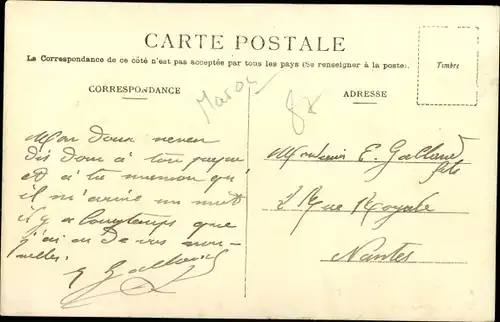 CARTE POSTALE
La Correspondance de ce côté n'est pas acceptée par tous les pays (Se renseigner à la poste).
Timbre
CORRESPONDANCE
Maroc
ADRESSE
Mon doux neveu
dis donc à ton papa
et à ta maman qu'
il m'arrive un mot
il y a longtemps que
j'ai eu de vos nou-
velles.
E Galland
Monsieur E. Galland
fils
2 Rue Royale
Nantes